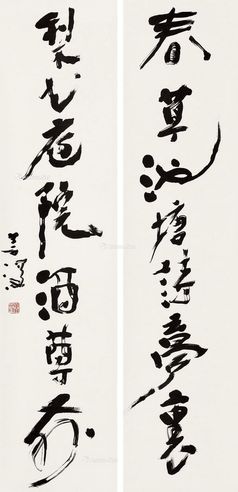 春草池塘詩夢裏
梨花庭院酒尊前